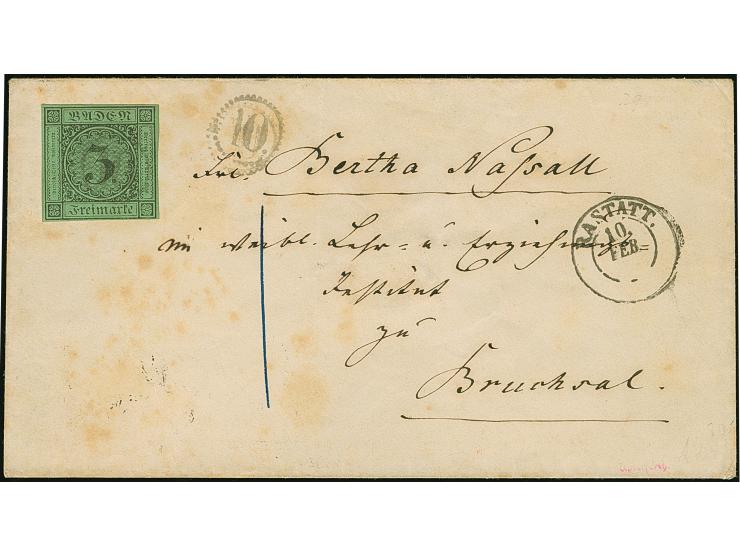 BADEN
3
Freimarke
10.
Frl. Bertha Naßall
im weibl. Lehr= u. Erziehung
Institut
zu
Bruchsal.
RASTATT.
10.
FEB=